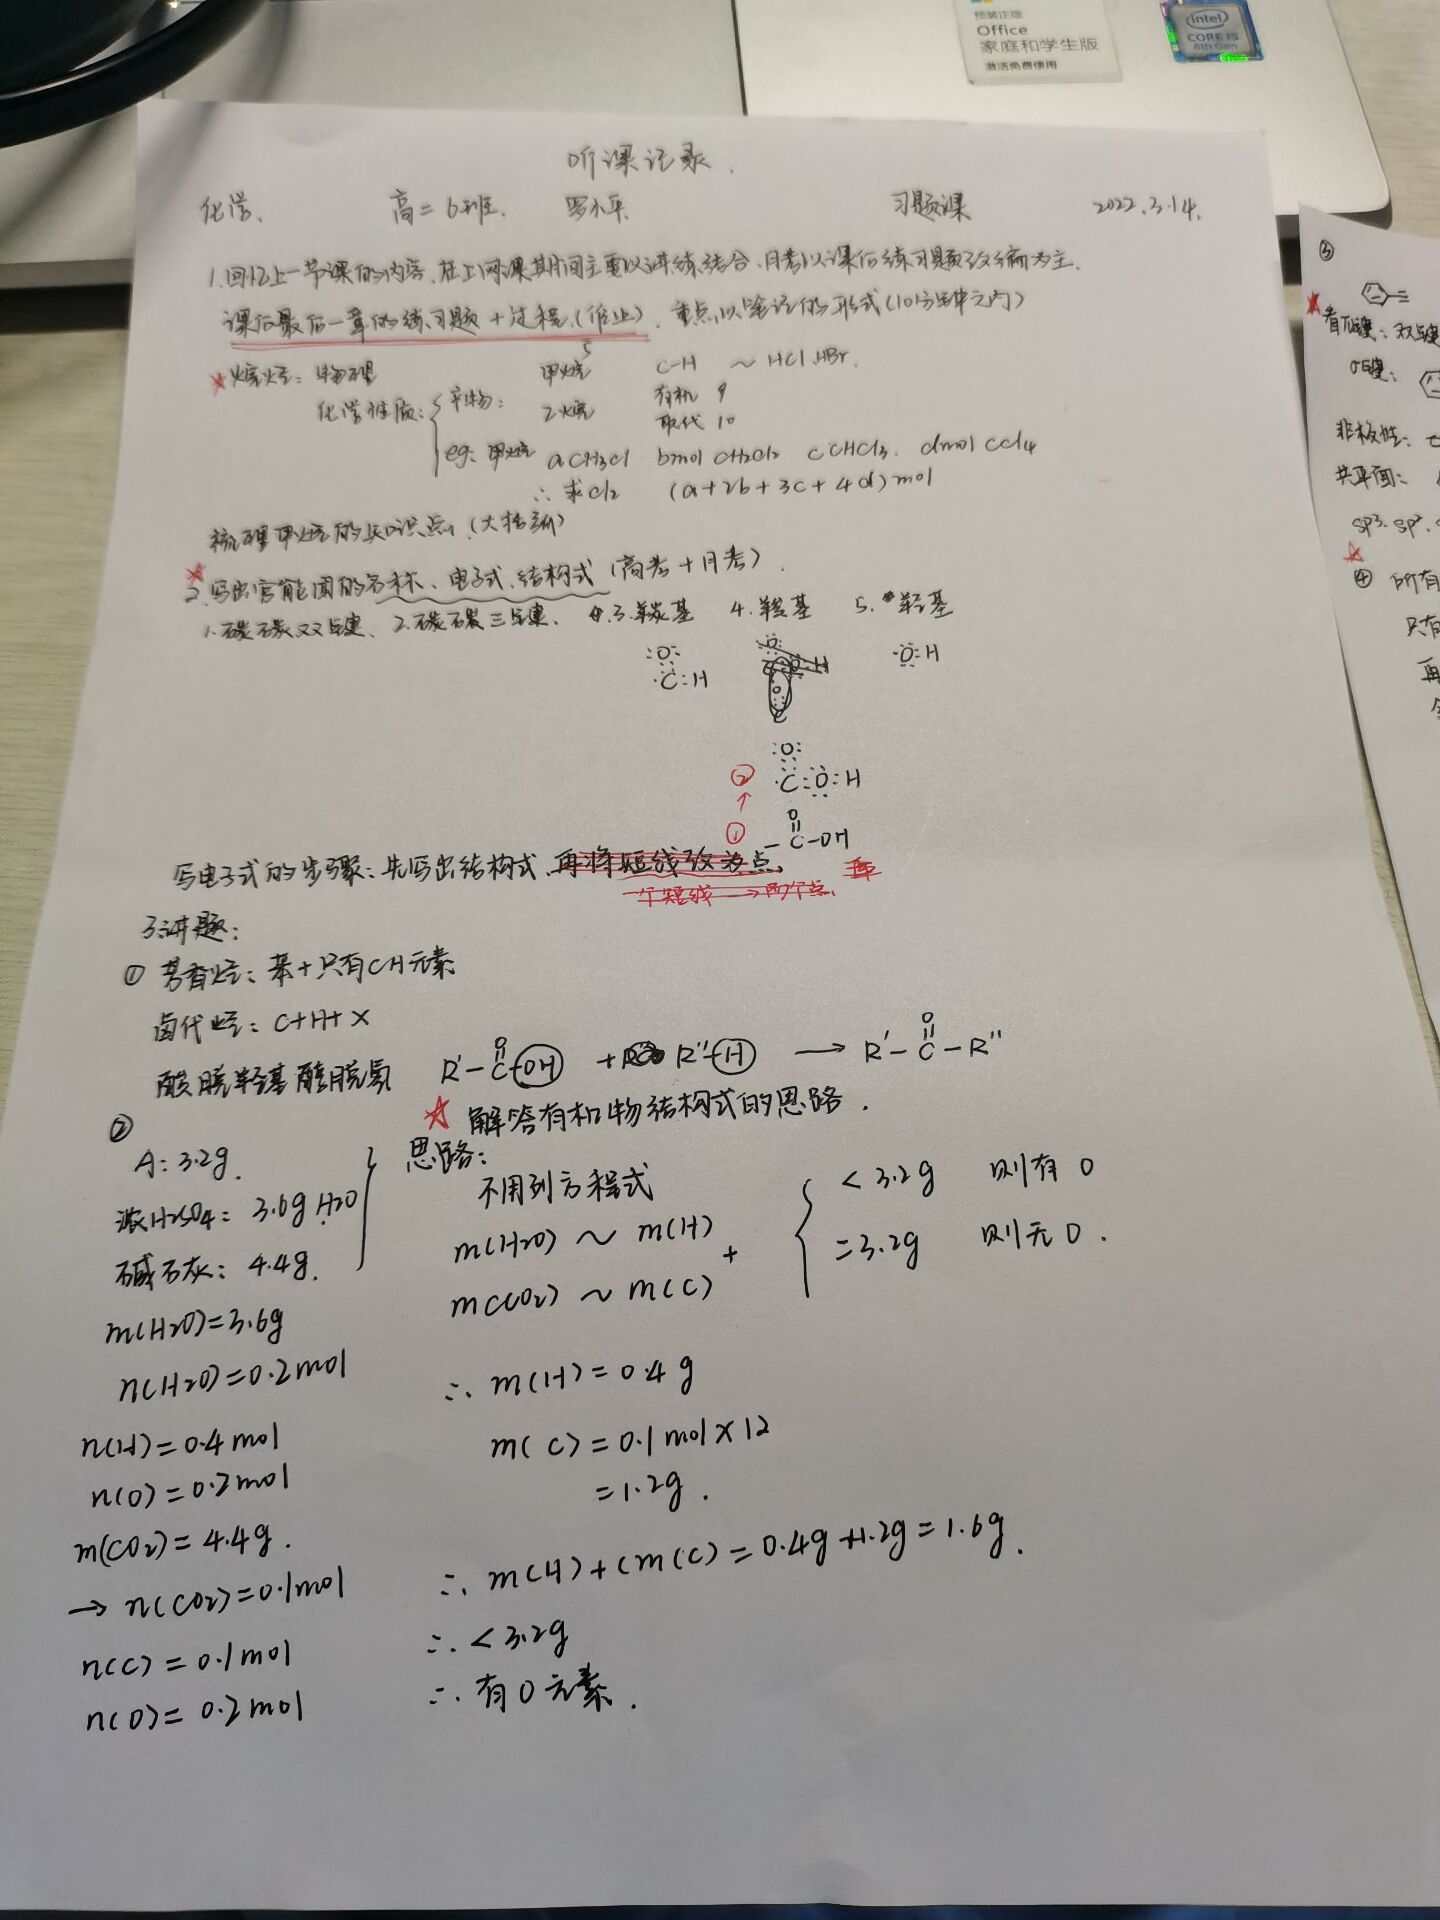 预装正版
Office
家庭和学生版
激活免费使用
intel
CORE i5
8th Gen
听课记录.
化学. 高二6班. 罗小平. 习题课 2022.3.14.
1.回忆上一节课的内容、在上网课期间主要以讲练结合、月考以课后练习题改编为主.
课后最后一章的练习题+过程.(作业). 重点以笔记的形式(10分钟之内)
烷烃: 物理 甲烷 C-H ~ HCl.HBr.
化学性质: 产物: 乙烷 有机 9
取代 10
eg: 甲烷 aCH3Cl bmol CH2Cl2 cCHCl3. dmol CCl4
∴ 求Cl2 (a+2b+3c+4d)mol
梳理甲烷的知识点.(大括弧)
2.写出官能团的名称、电子式.结构式(高考+月考).
1.碳碳双键、 2.碳碳三键、 3.羰基 4.羧基 5.羟基
:O:
·C:H
·O:H
:O:
② ·C:O:H
↑
① O
-C-OH
写电子式的步骤:先写出结构式.再将短线改为点.
一个短线→两个点.
3.讲题:
① 芳香烃: 苯+只有CH元素
卤代烃: C+H+X
酸脱羟基醇脱氢 R'-C-OH + R''-H → R'-C-R''
O O
☆ 解答有机物结构式的思路.
②
A: 3.2g.
浓H2SO4: 3.6g H2O
碱石灰: 4.4g.
m(H2O)=3.6g
n(H2O)=0.2mol
n(H)=0.4mol
n(O)=0.2mol
m(CO2)=4.4g.
→ n(CO2)=0.1mol
n(C)=0.1mol
n(O)=0.2mol
思路:
不用列方程式
m(H2O) ~ m(H)
+
m(CO2) ~ m(C)
<3.2g 则有O
=3.2g 则无O.
∴ m(H)=0.4g
m(C)=0.1mol×12
=1.2g.
∴ m(H)+(m(C)=0.4g+1.2g=1.6g.
∴ <3.2g
∴ 有O元素.
③
看π键: 双键
σ键:
非极性:
共平面:
sp3. sp2.
④ 所有
只有
再